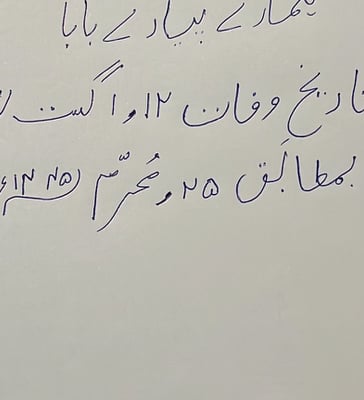 تمھارے پیارے بابا
تاریخ وفات ۱۲؍ اگست
بمطابَق ۲۵؍ مُحرّم ۱۴۴۵